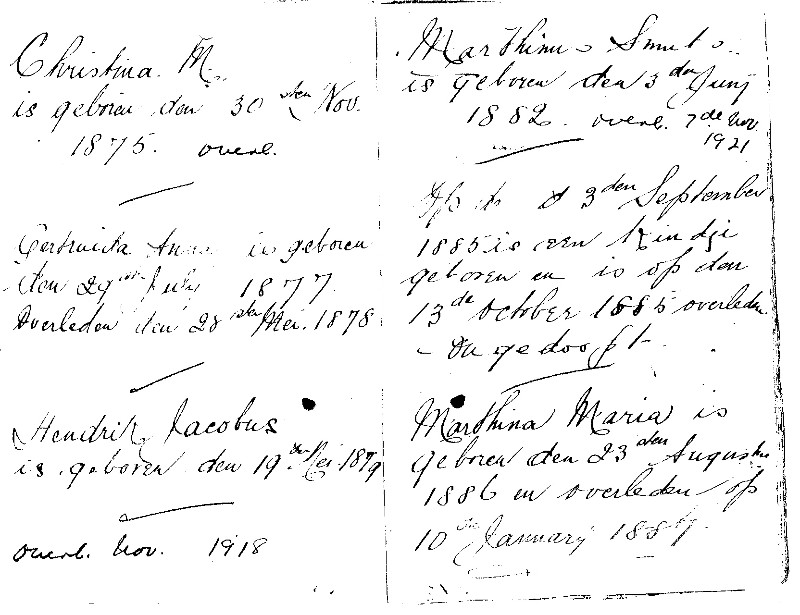 Christina M.
is geboren den 30 sten Nov.
1875. overl.
Gertruida Anna is geboren
den 29 sten July 1877.
Overleden den 28 sten Mei. 1878
Hendrik Jacobus
is geboren den 19 den Mei 1879
overl. Nov. 1918
Marthinus Smuts
is geboren den 3 den Junj
1882. overl. 7 de Nov
1921
3 den September
1885 is een kindji
geboren en is op den
13 de October 1885 overleden
- On gedoopt -
Marthina Maria is
geboren den 23 den Augustus
1886 en overleden op
10 January